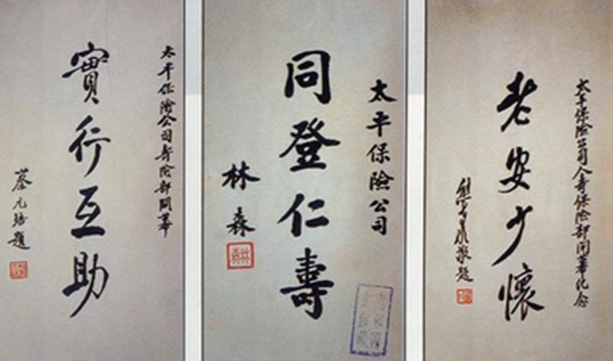 太平保險公司人壽保險部開幕紀念
老安少懷
敬題
太平保險公司
同登仁壽
林森
太平保險公司壽險部開幕
實行互助
蔡元培題